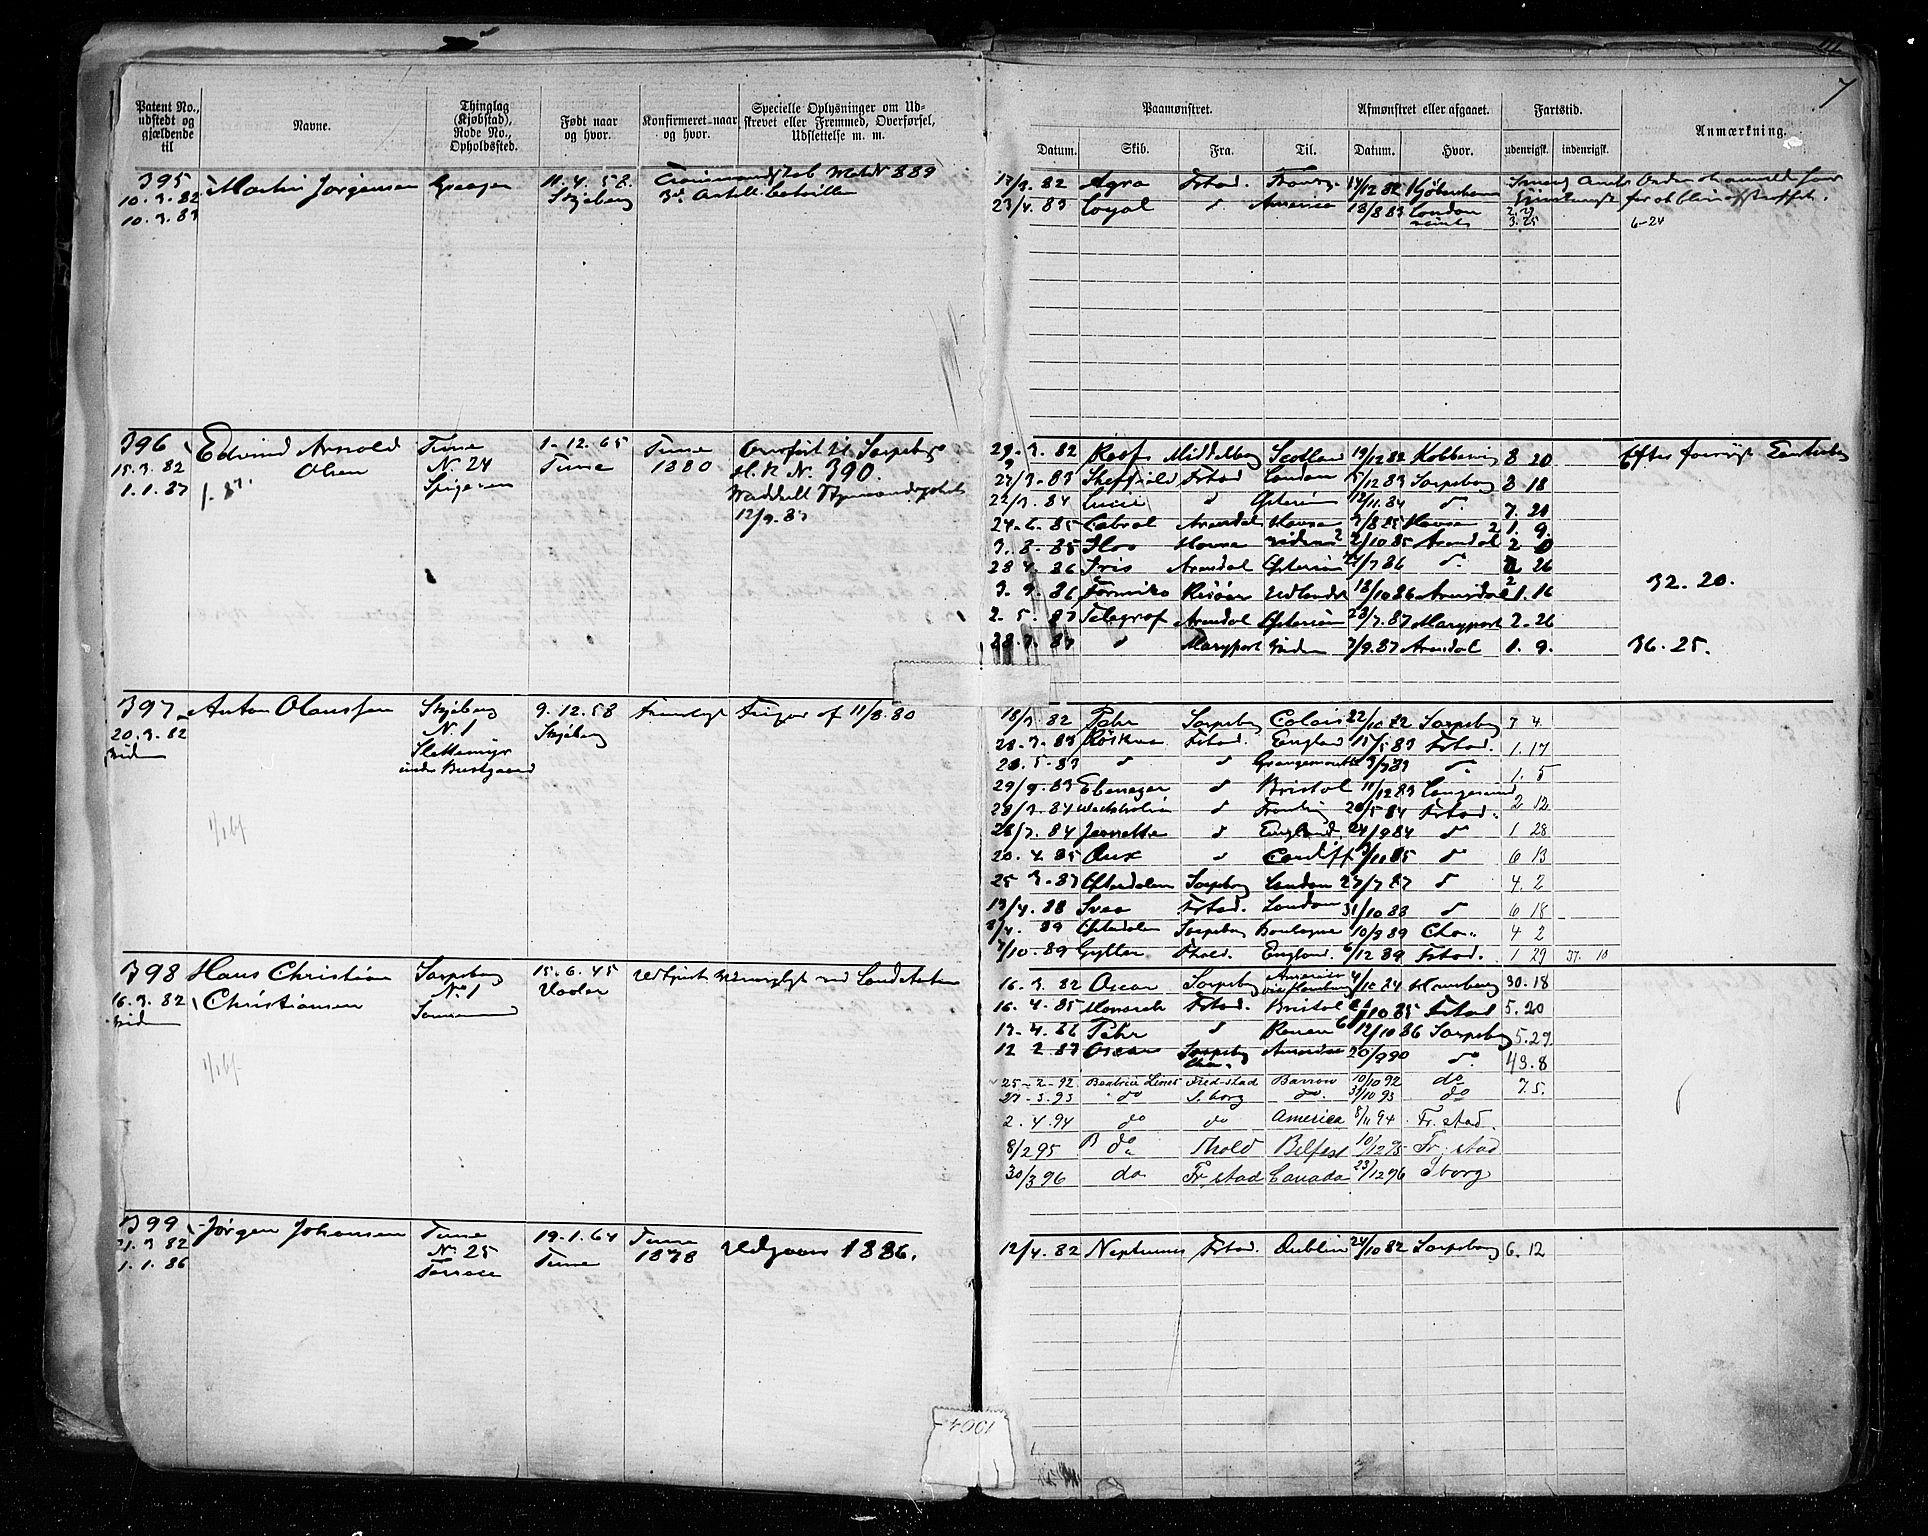 7
Patent No., udstedt og gjældende til
Navne.
Thinglag (Kjøbstad), Rode No., Opholdssted.
Født naar og hvor.
Konfirmeret naar og hvor.
Specielle Oplysninger om Udskrevet eller Fremmed, Overførsel, Udslettelse m. m.
Paamønstret.
Afmønstret eller afgaaet.
Fartstid.
Anmærkning.
Datum. Skib. Fra. Til. Datum. Hvor. udenrigsk. indenrigsk.
395 Martin Jørgensen Greager 11. 4. 58. Skjeberg
10. 3. 82
10. 3. 83
No 889
17/3. 82 Agra Fstad. 14/12 82 Kjøbenhavn
23/4. 83 Loyal do America 18/8 83 London
2. 29
3. 25
6-24
396 Edvind Arnold Olsen Tune N. 24 1-12. 65 Tune Tune 1880 Overført til Sarpsborg H. R. N. 390.
15. 3. 82
1. 1. 87
12/9. 87
29. 3. 82 Middelborg Scotland 19/12 82 8 20
27/3. 83 Sheffield Fstad London 15/12 83 Sarpsborg 8 18
22/3. 84 Lucie do Østersøen 12/11. 84 do 7. 20
24. 6. 85 Cabral Arendal Havre 3/8 85 Havre 1. 9.
3. 8. 85 Havre 2/10 85 Arendal 2 0
28 4. 86 Iris Arendal Østersøen /7 86 do 2 26
3. 9. 86 Formica Risøer Udlandet 18/10 86 Arendal 1. 16
32. 20.
2. 5. 87 Telegraf Arendal Østersøen 23/7. 87 Maryport 2. 26
28. 7. 87 " Maryport 7/9. 87 Arendal 1. 9.
36. 25.
397 Anton Olaussen Skjeberg N. 1 Slettemyr under Bustgaard 9. 12. 58 Skjeberg Frivilligt af 11/8. 80
20. 3. 82
18/3. 82 Pehr Sarpsborg Calais 22/10 82 Sarpsborg 7 4.
28. 3. 83 Röskva Fstad. England 15/5 83 Fstad. 1. 17
28. 5. 83 do do Grangemouth 3/7 83 do 1. 5
29/9. 83 Ebenezer do Bristol 11/12 83 Langesund 2 12
28/3. 84 do 20/5 84 Fstad.
28/7. 84 Jeanette do England. 24/9 84 do 1 28
20. 4. 85 Dux do Cardiff 3/11 85 do 6 13
25 3. 87 Østerdalen Sarpsborg London 27/7 87 do 4. 2
13/4. 88 Svea Fstad. London 31/10 88 do 6 18
8/4. 89 Østerdalen Sarpsborg Boulogne 10/8 89 Chra. 4 2
7/10. 89 Gyller Fhald. England. 6/12 89 Fstad. 1 29 37. 10
398 Hans Christian Christiansen Sarpsborg N. 1 15. 6. 45 Vaaler
16. 3. 82
16. 3. 82 Oscar Sarpsborg America via Hamburg 4/12 84 Hamburg 30. 18
16. 4. 85 Monarch Fstad. Bristol 6/10 85 Fstad 5. 20
13. 4. 86 Pehr do Rouen 12/10 86 Sarpsborg 5. 29
12 2. 87 Oscar Sarpsborg America 20/9 90 do 43. 8
25-2-92 Beatrice Lines Fred-stad Barrow 10/10 92 do 7. 5.
27-3. 93 do S. borg do 31/10 93 do
2. 4. 94 do do America 8/11 94 Fr. stad.
8/2 95 B do Fhold Belfast 10/12 95 Fr. stad
30/3 96 do Fr, stad Canada 23/12 96 Sborg
399 Jørgen Johansen Tune N. 25 19. 1. 64 Tune Tune 1878 Udgaaer 1886.
21. 3. 82
1. 1. 86
12/4. 82 Neptunus Fstad. Dublin 24/10 82 Sarpsborg 6. 12
1904